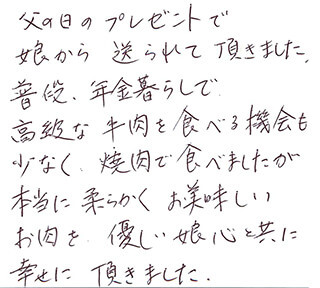 父の日のプレゼントで
娘から 送られて 頂きました。
普段、年金暮らしで
高級な 牛肉を 食べる機会も
少なく、焼肉で食べましたが
本当に 柔らかく お美味しい
お肉を 優しい娘心と共に
幸せに 頂きました.